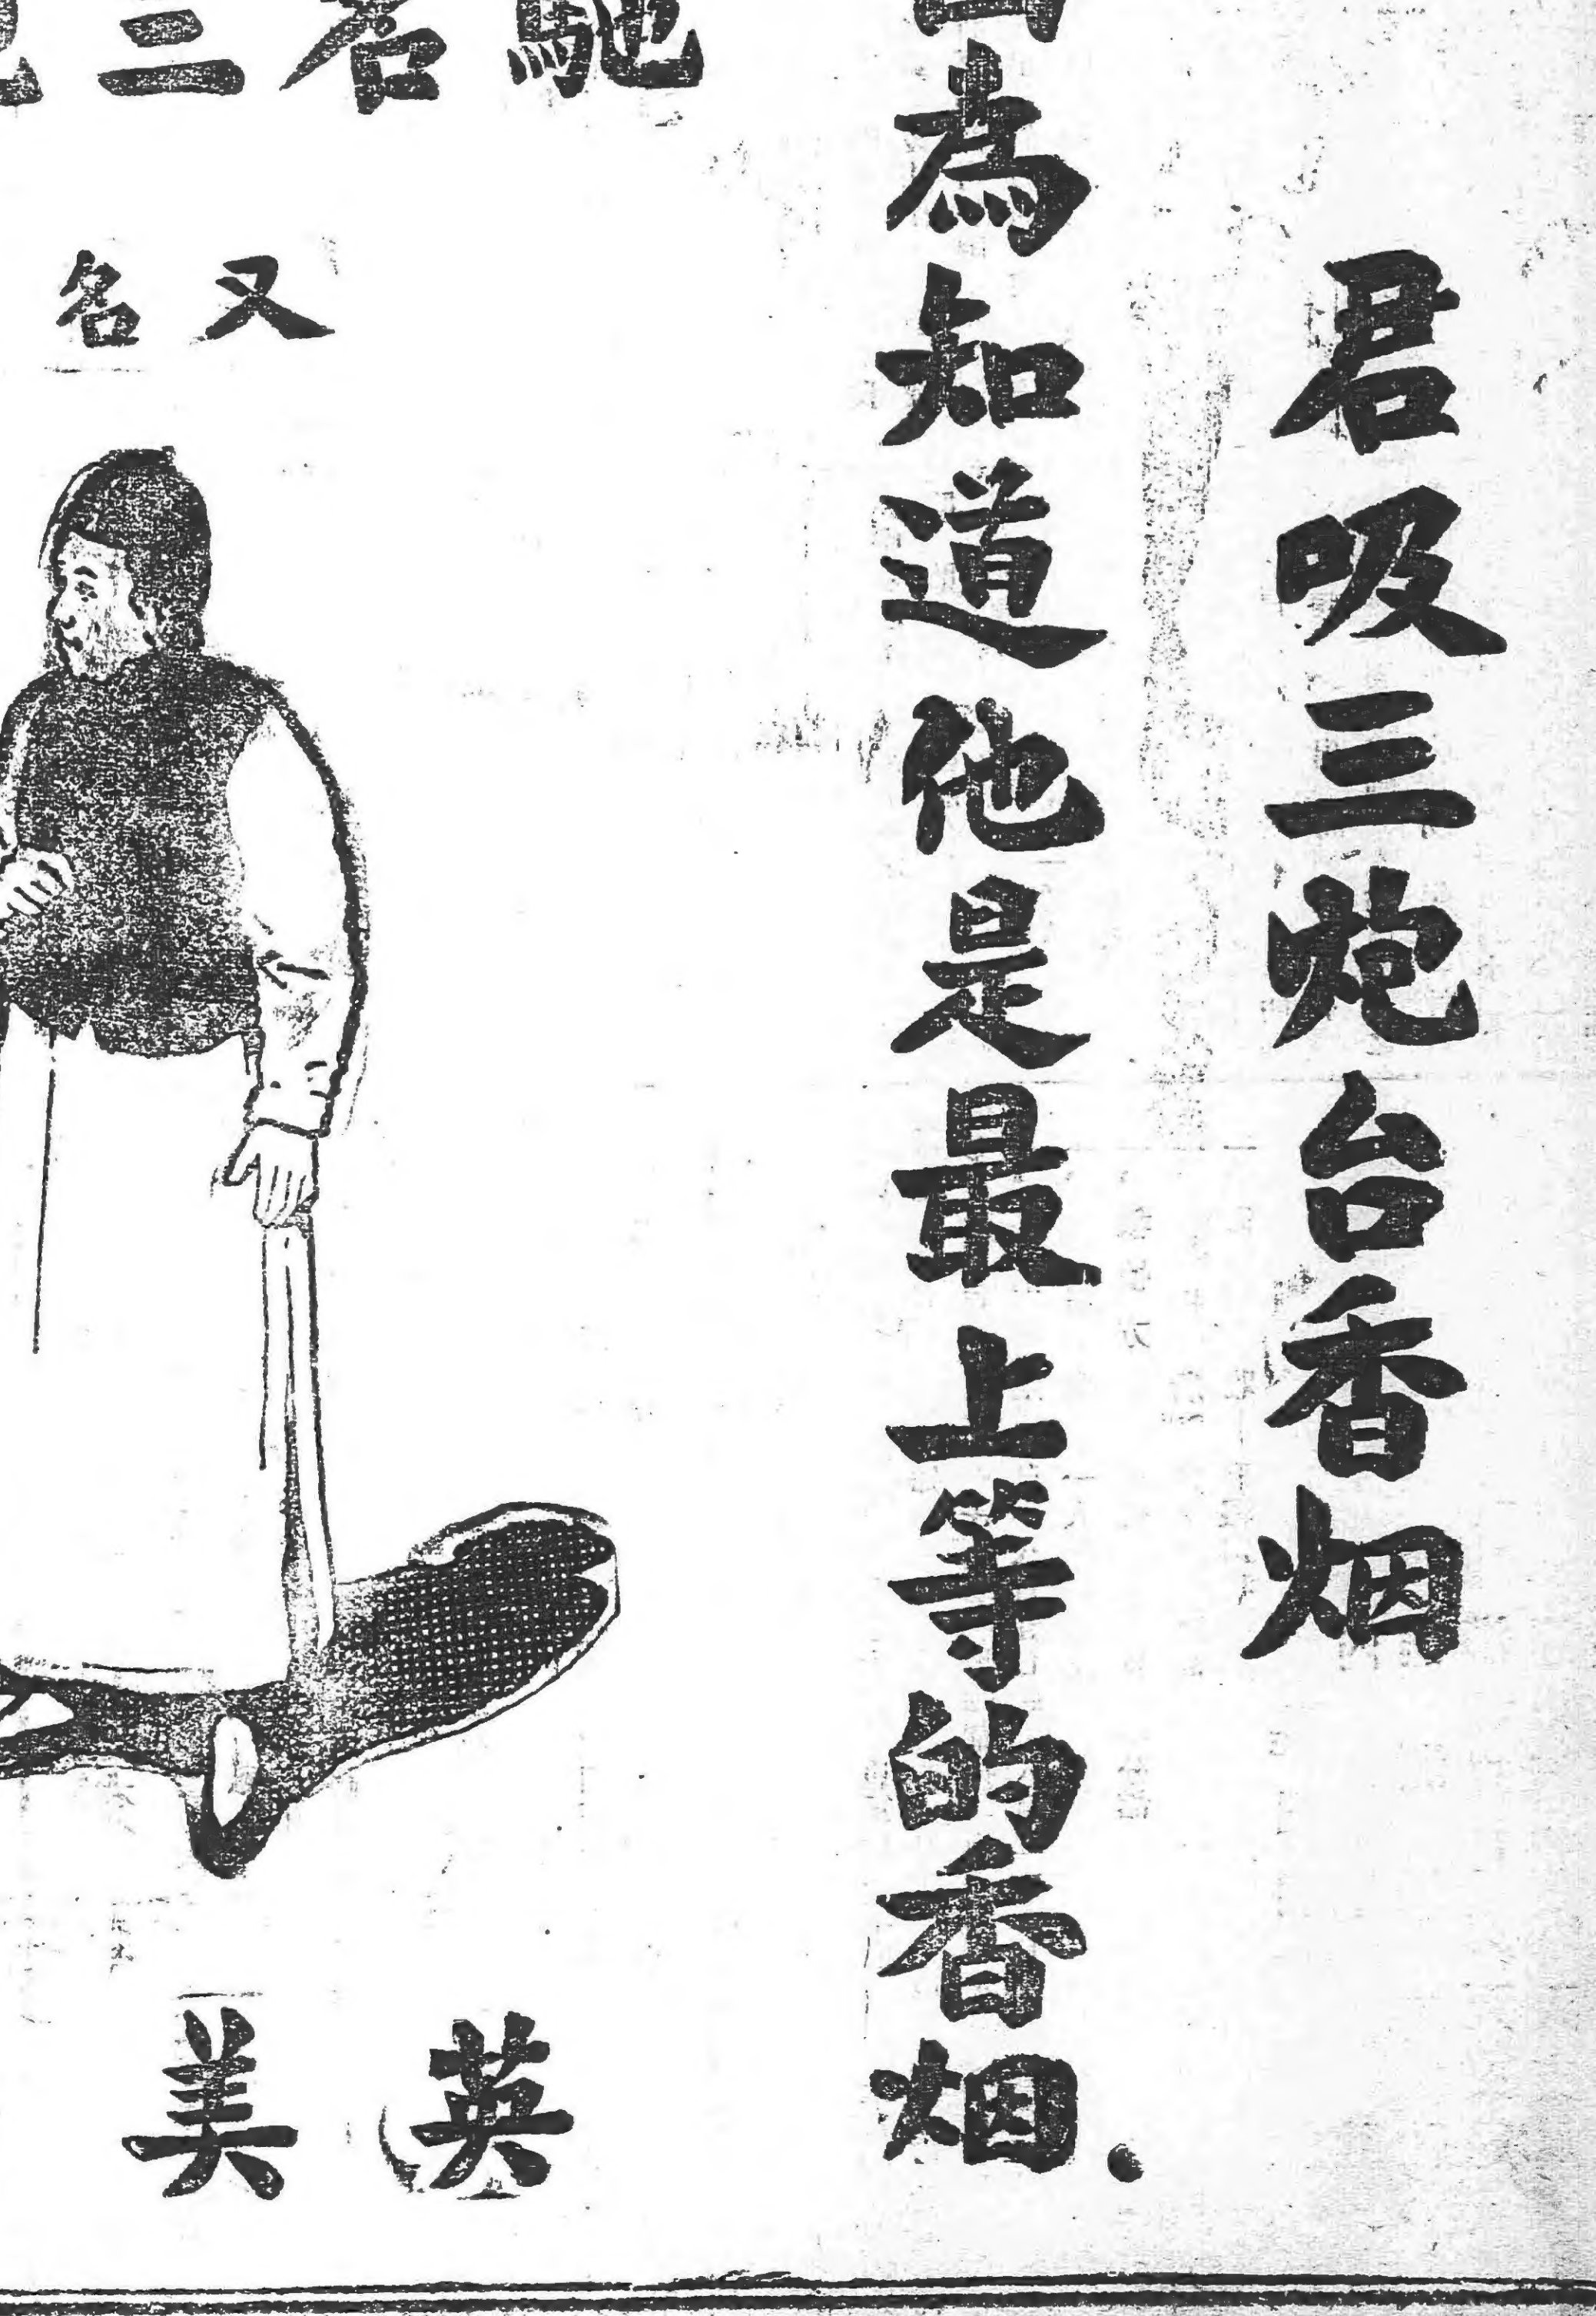 君吸三炮台香烟
為知道他是最上等的香烟.
馳名三
又名
英美